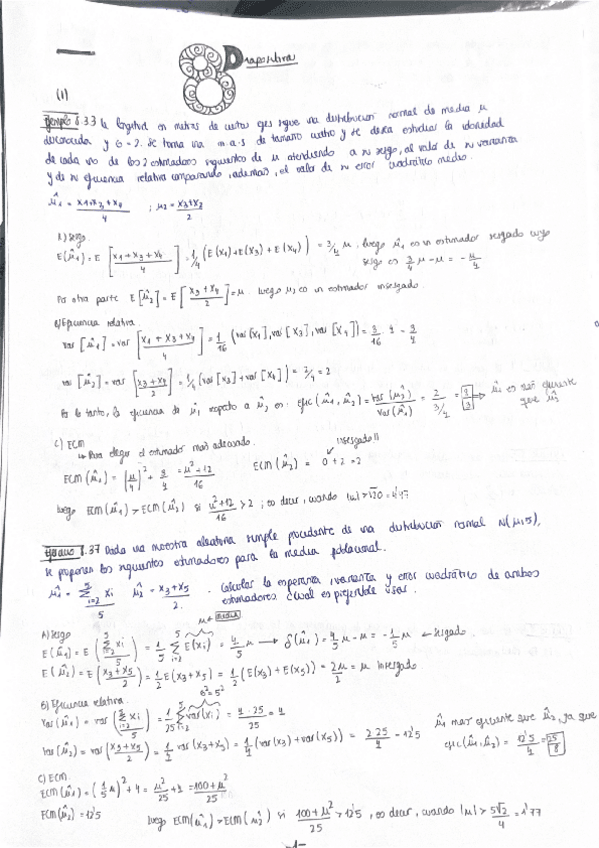 8 Diapositiva
(1)
Ejemplo 8.33 La longitud en metros de ciertos ejes sigue una distribucion normal de media μ
desconocida y σ=2. Se toma una m.a.s de tamaño cuatro y se desea estudiar la idoneidad
de cada uno de los 2 estimadores siguientes de μ atendiendo a su sesgo, al valor de su varianza
y de su eficiencia relativa comparando, ademas, el valor de su error cuadrático medio.
μ̂1 = (x1+x3+x4)/4 ; μ2 = (x3+x4)/2
A) Sesgo.
E(μ̂1) = E[(x1+x3+x4)/4] = 1/4 (E(x1)+E(x3)+E(x4)) = 3/4 μ, luego μ̂1 es un estimador sesgado cuyo
sesgo es 3/4 μ - μ = - μ/4
Por otra parte E[μ̂2] = E[(x3+x4)/2] = μ. luego μ2 es un estimador insesgado.
B) Eficiencia relativa.
var[μ̂1] = var[(x1+x3+x4)/4] = 1/16 (var[x1], var[x3], var[x4]) = 3/16 · 4 = 3/4
var[μ̂2] = var[(x3+x4)/2] = 1/4 (var[x3]+var[x4]) = 2
Por lo tanto, la eficiencia de μ̂1 respecto a μ̂2 es: efic(μ̂1, μ̂2) = var(μ̂2)/var(μ̂1) = 2/(3/4) = 8/3 → μ̂1 es más eficiente
que μ̂2
C) ECM
↳ Para elegir el estimador mas adecuado. insesgado!!
ECM(μ̂1) = (μ/4)² + 3/4 = (μ²+12)/16 ECM(μ̂2) = 0+2 = 2
luego ECM(μ̂1) > ECM(μ̂2) si (μ²+12)/16 > 2 ; es decir, cuando |μ| > √20 = 4'47
Ejercicio 8.37 Dada una muestra aleatoria simple procedente de una distribucion normal N(μ,5),
se proponen los siguientes estimadores para la media poblacional.
μ̂1 = Σ(i=2 a 5) xi / 5 μ̂2 = (x3+x5)/2 . Calcular la esperanza, varianza y error cuadrático de ambos
estimadores ¿cual es preferible usar.
μ = media
A) Sesgo
E(μ̂1) = E(Σ(i=2 a 5) xi / 5) = 1/5 Σ(i=2 a 5) E(xi) = 4/5 μ → δ(μ̂1) = 4/5 μ - μ = - 1/5 μ ← sesgado.
E(μ̂2) = E((x3+x5)/2) = 1/2 E(x3+x5) = 1/2 (E(x3)+E(x5)) = 2μ/2 = μ insesgado
σ²=5²
B) Eficiencia relativa.
Var(μ̂1) = var(Σ(i=2 a 5) xi / 5) = 1/25 Σ(i=2 a 5) var(xi) = 4·25/25 = 4 μ̂1 mas eficiente que μ̂2, ya que
Var(μ̂2) = var((x3+x5)/2) = 1/4 var(x3+x5) = 1/4 (var(x3)+var(x5)) = 2·25/4 = 12'5 efic(μ̂1, μ̂2) = 12'5/4 = 25/8
C) ECM.
ECM(μ̂1) = (1/5 μ)² + 4 = μ²/25 + 4 = (100+μ²)/25
ECM(μ̂2) = 12'5 luego ECM(μ̂1) > ECM(μ̂2) si (100+μ²)/25 > 12'5 , es decir, cuando |μ| > 5√2/4 = 1'77
-1-